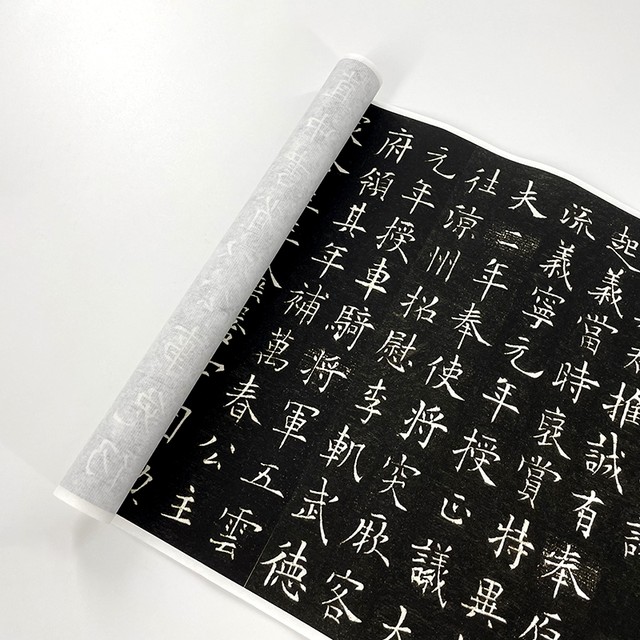 推誠有奉
起義當時褒賞特異
流義寧元年授正議大
夫二年奉使將突厥客
往涼州招慰李軌武德
元年授車騎將軍五雲
府領其年補萬春公主